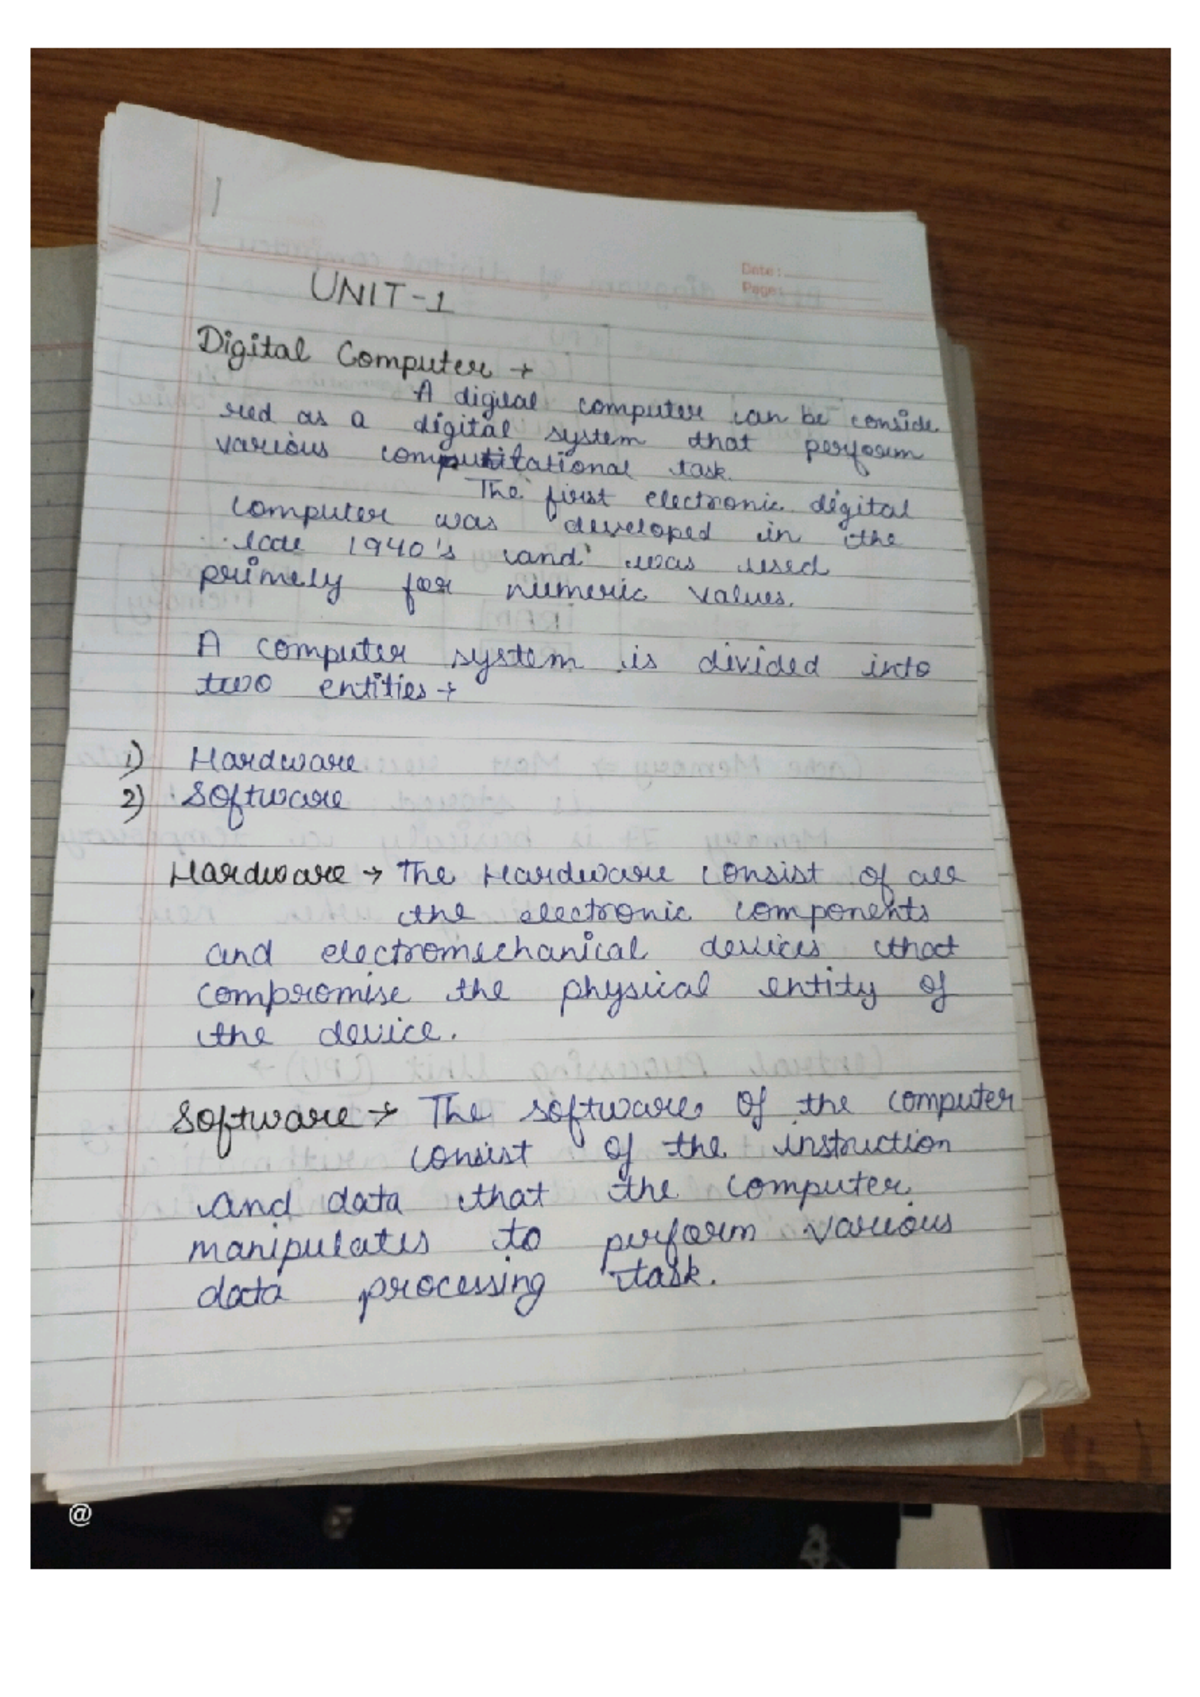 1
Date:
Page:
UNIT-1
Digital Computer →
A digital computer can be conside
red as a digital system that perform
various computational task.
The first electronic digital
computer was developed in the
late 1940's and was used
primely for numeric values.
A computer system is divided into
two entities →
1) Hardware
2) Software
Hardware → The Hardware consist of all
the electronic components
and electromechanical devices that
compromise the physical entity of
the device.
Software → The software of the computer
consist of the instruction
and data that the computer
manipulates to perform various
data processing task.
@